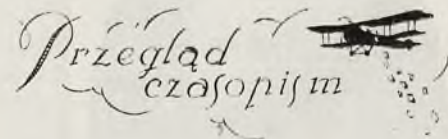 Przegląd
czasopism